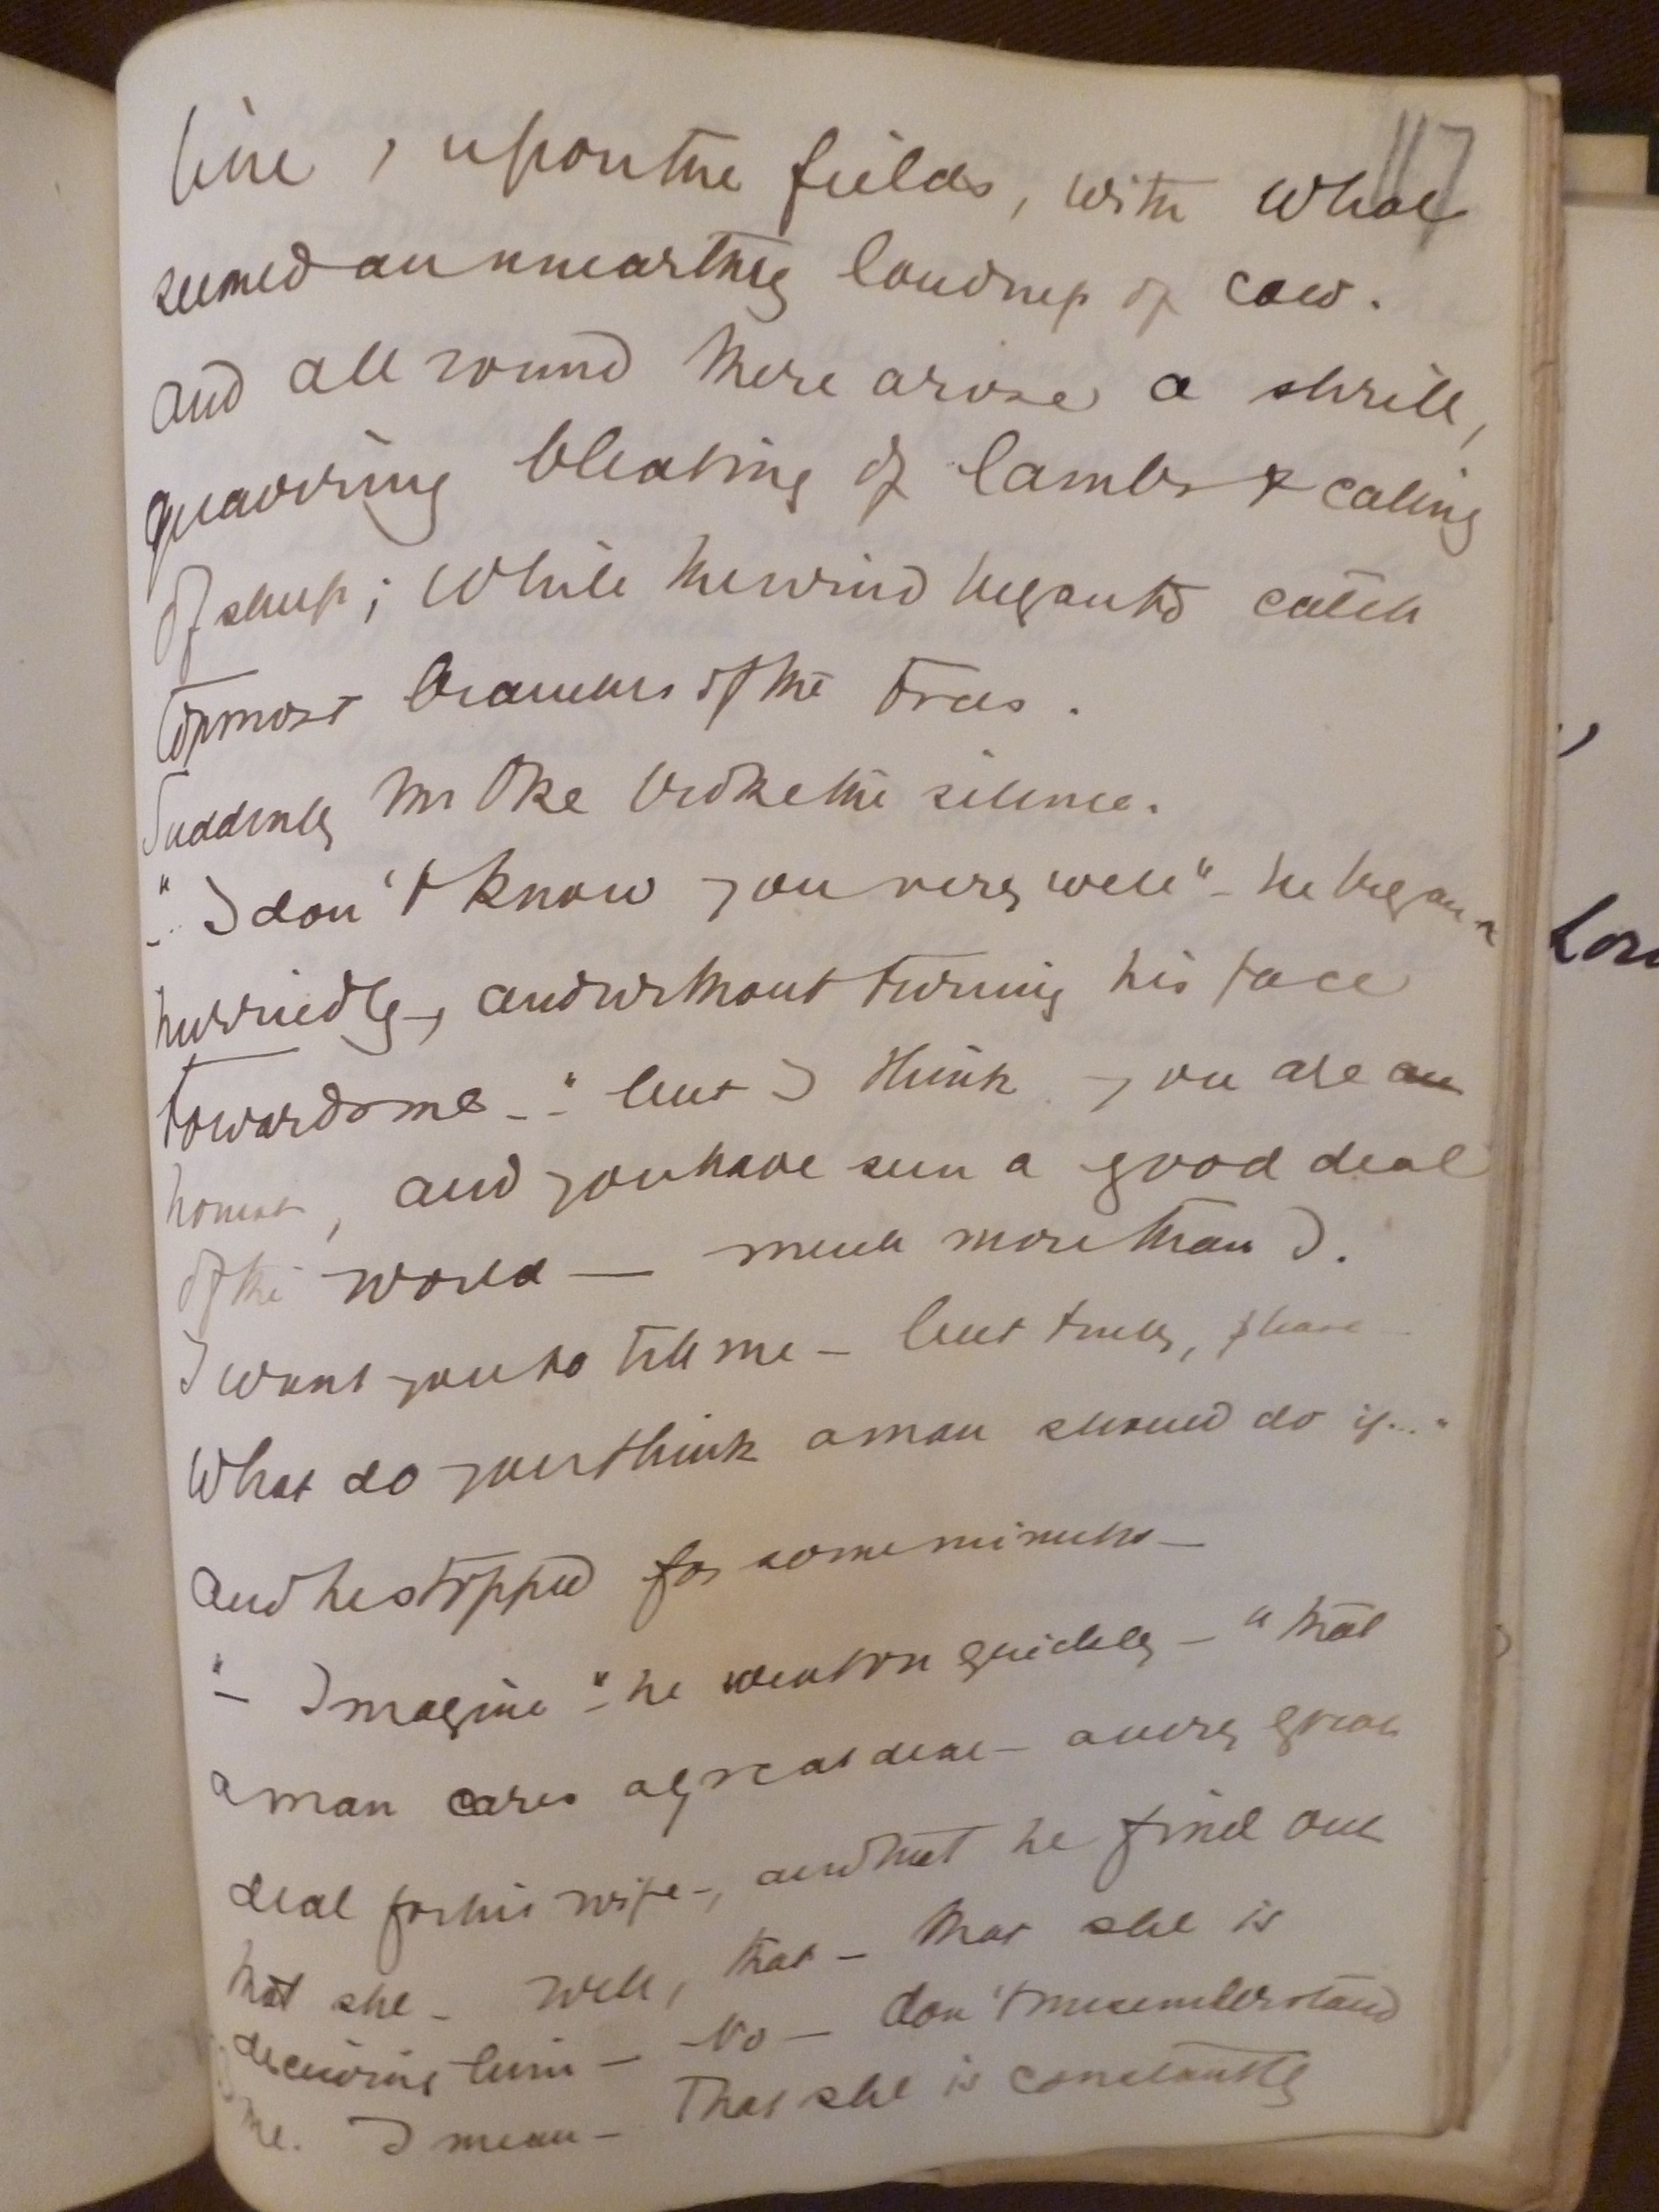 117
line, upon the fields, with what
seemed an unearthly loudness of caw.
And all round there arose a shrill,
quavering bleating of lambs & calling
of sheep; while the wind began to catch
topmost branches of the trees.
Suddenly Mr Oke broke the silence.
"- I don't know you very well" - he began
hurriedly -, and without turning his face
towards me - " but I think you are an
honest, and you have seen a good deal
of the world — much more than I.
I want you to tell me - but truly, please
What do you think a man should do if..."
and he stopped for some minutes -
"- Imagine" - he went on quickly - "that
a man cares a great deal - a very great
deal for his wife -, and that he find out
that she - well, that - that she is
deceiving him - No - don't misunderstand
me. I mean - That she is constantly
Lou